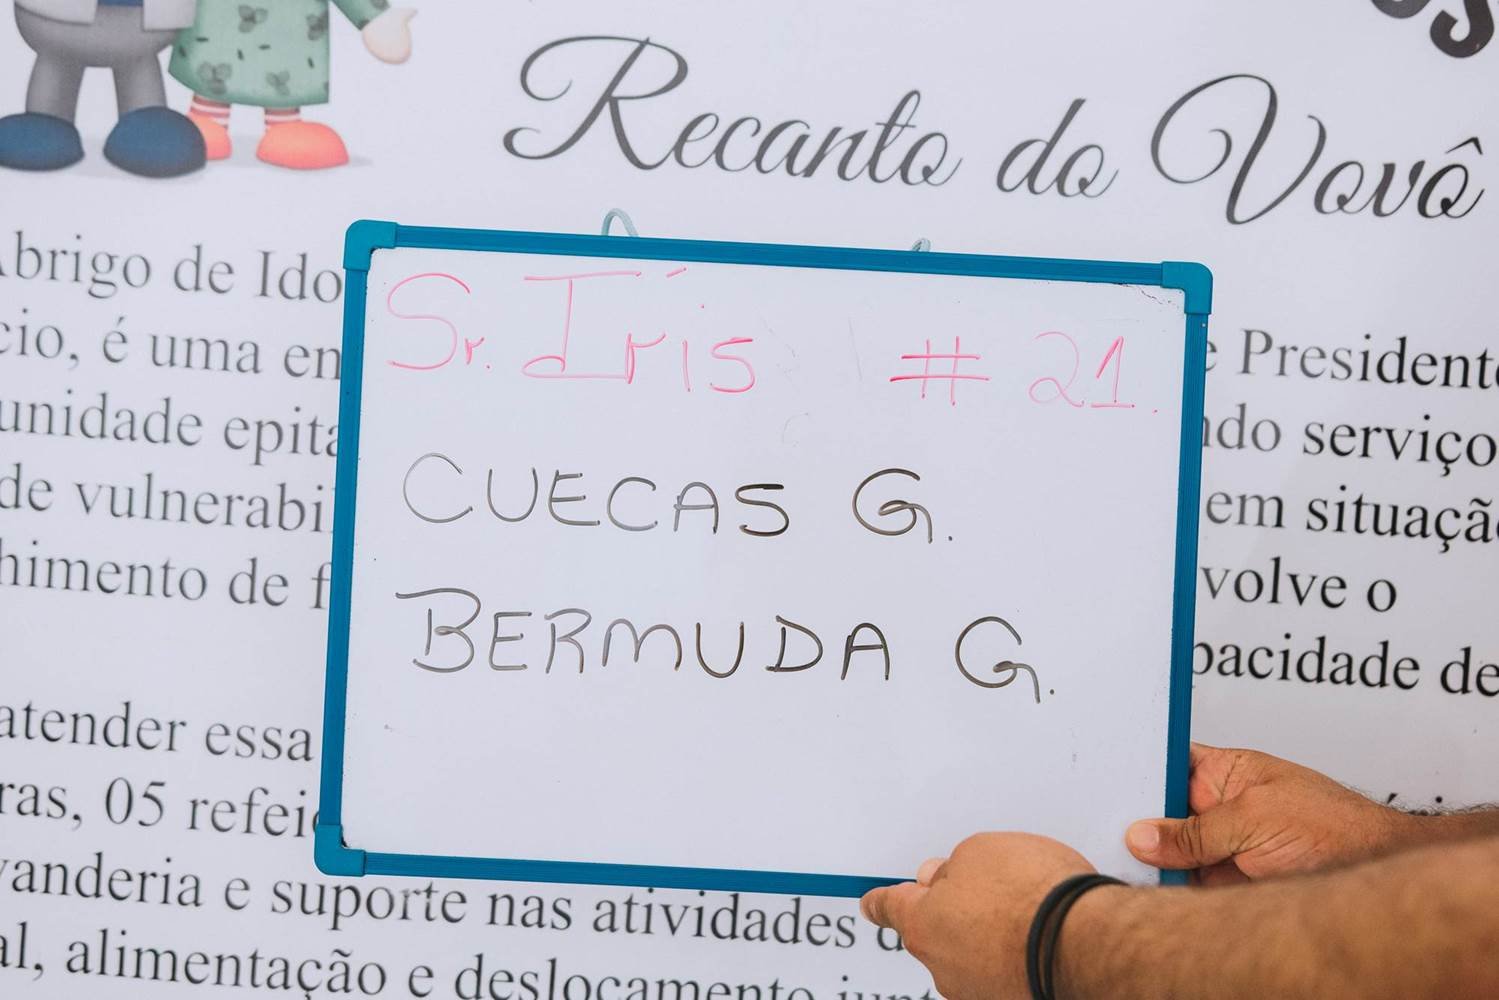 Recanto do Vovô
brigo de Ido
cio, é uma en
unidade epita
de vulnerabi
himento de f
atender essa
ras, 05 refei
vanderia e suporte nas atividades d
al, alimentação e deslocamento junt
Sr. Íris # 21.
CUECAS G.
BERMUDA G.
e Presidente
ndo serviço
em situação
volve o
pacidade de